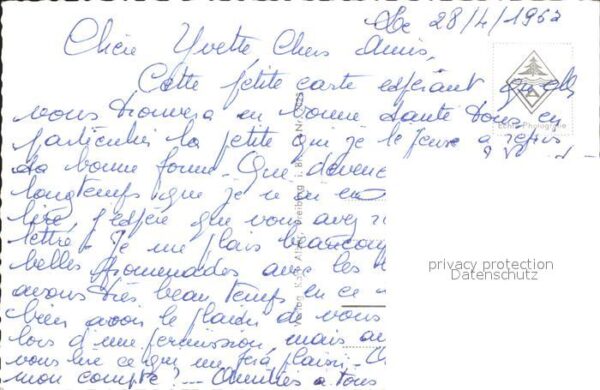 Le 28/4/1962
Chère Yvette, Chers Amis,
Cette petite carte espérant qu'elle
vous trouvera en bonne santé tous en
particulier la petite qui je le pense a repris
sa bonne forme. Que devene
longtemps que je n'ai en
lire, j'espère que vous avez
lettre. Je me plais beaucoup
belles promenades avec les
avons très beau temps en ce
bien avoir le plaisir de vous
lors d'une permission, mais
vous lire ce qui me fera plaisir.
mon compte? Amitiés à tous
Echte Photografie
privacy protection
Datenschutz